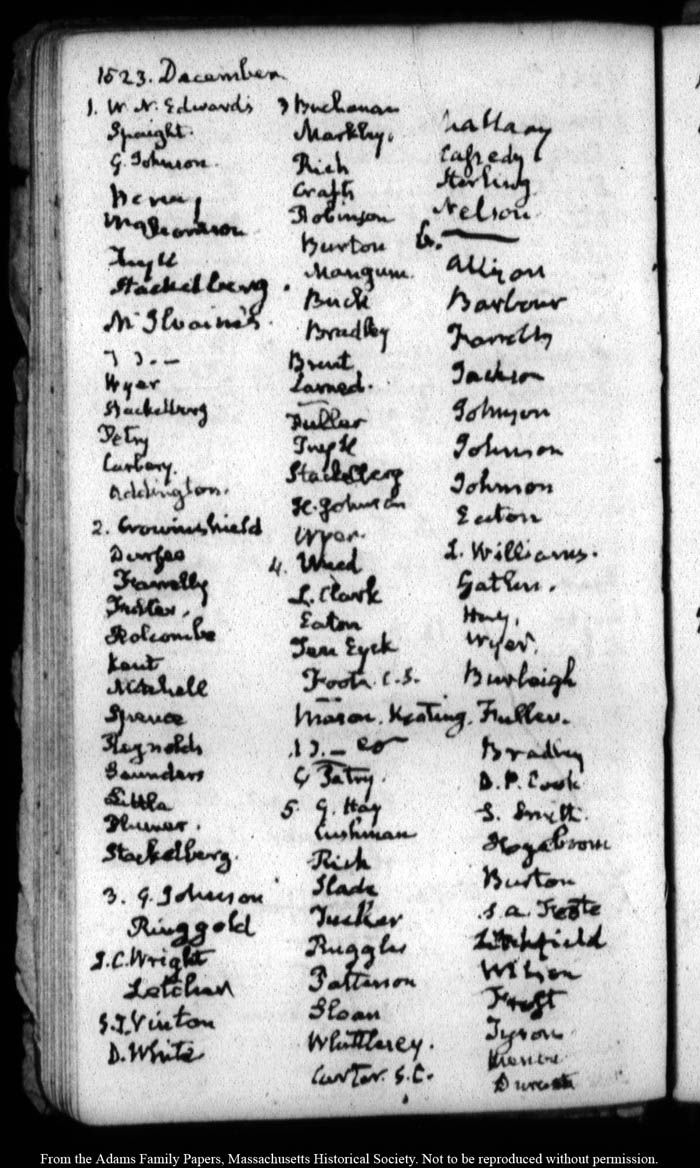 1823. December
1. W. N. Edwards
Spaight.
G. Johnson.
Henry
Tuyll
Stackelberg.
McIlvaine's
Wyer
Stackelberg
Petry
Carbery.
Addington.
2. Crowninshield
Durfee
Farrelly
Foster.
Holcombe
Kent
Mitchell
Spence
Reynolds
Saunders
Little
Plumer.
Stackelberg.
3. G. Johnson
Ringgold
J. C. Wright
Letcher
S. F. Vinton
D. White
3 Buchanan
Markley.
Rich
Crafts
Robinson
Burton
Mangum.
Buck
Bradley
Brent
Larned.
Fuller
Tuyll
Stackelberg
Johnson
Wyer.
4. Weed
L. Clark
Eaton
Ten Eyck
Foote. C. S.
Mason. Keating. Fuller.
Petry.
5. G. Hay
Cushman
Rich
Slade
Tucker
Ruggles
Patterson
Sloan
Whittlesey.
Carter. S. C.
Cassedy
Sterling
Nelson
6.
Allison
Barbour
Farrelly
Jackson
Johnson
Johnson
Johnson
Eaton
L. Williams.
Gatlin.
Wyer.
Burleigh
Bradley
D. P. Cook
S. Smith.
Hogeboom
Burton
S. A. Foote
Litchfield
Wilson
Frost
Tyson
From the Adams Family Papers, Massachusetts Historical Society. Not to be reproduced without permission.